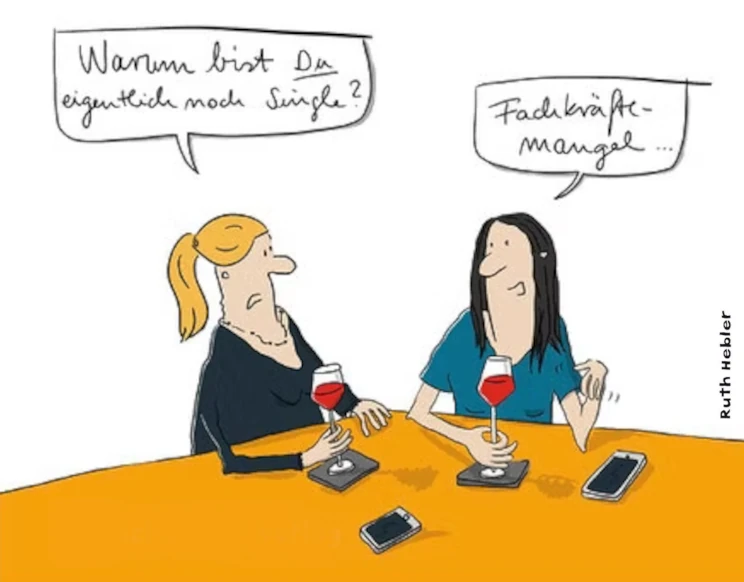 Warum bist Du
eigentlich noch Single?
Fachkräfte-
mangel...
Ruth Hebler